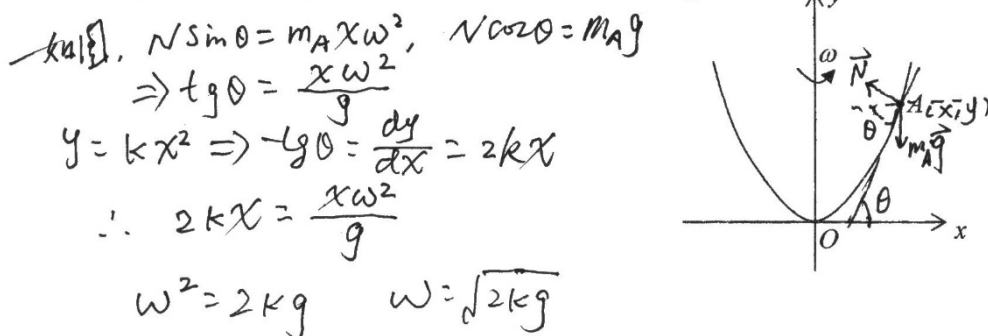 如图, N sin θ = m_A x ω², N cos θ = m_A g
⇒ tg θ = xω²/g
y = kx² ⇒ tg θ = dy/dx = 2kx
∴ 2kx = xω²/g
ω² = 2kg ω = √2kg
y
ω
N⃗
A(x, y)
θ
m_A g⃗
θ
O
x